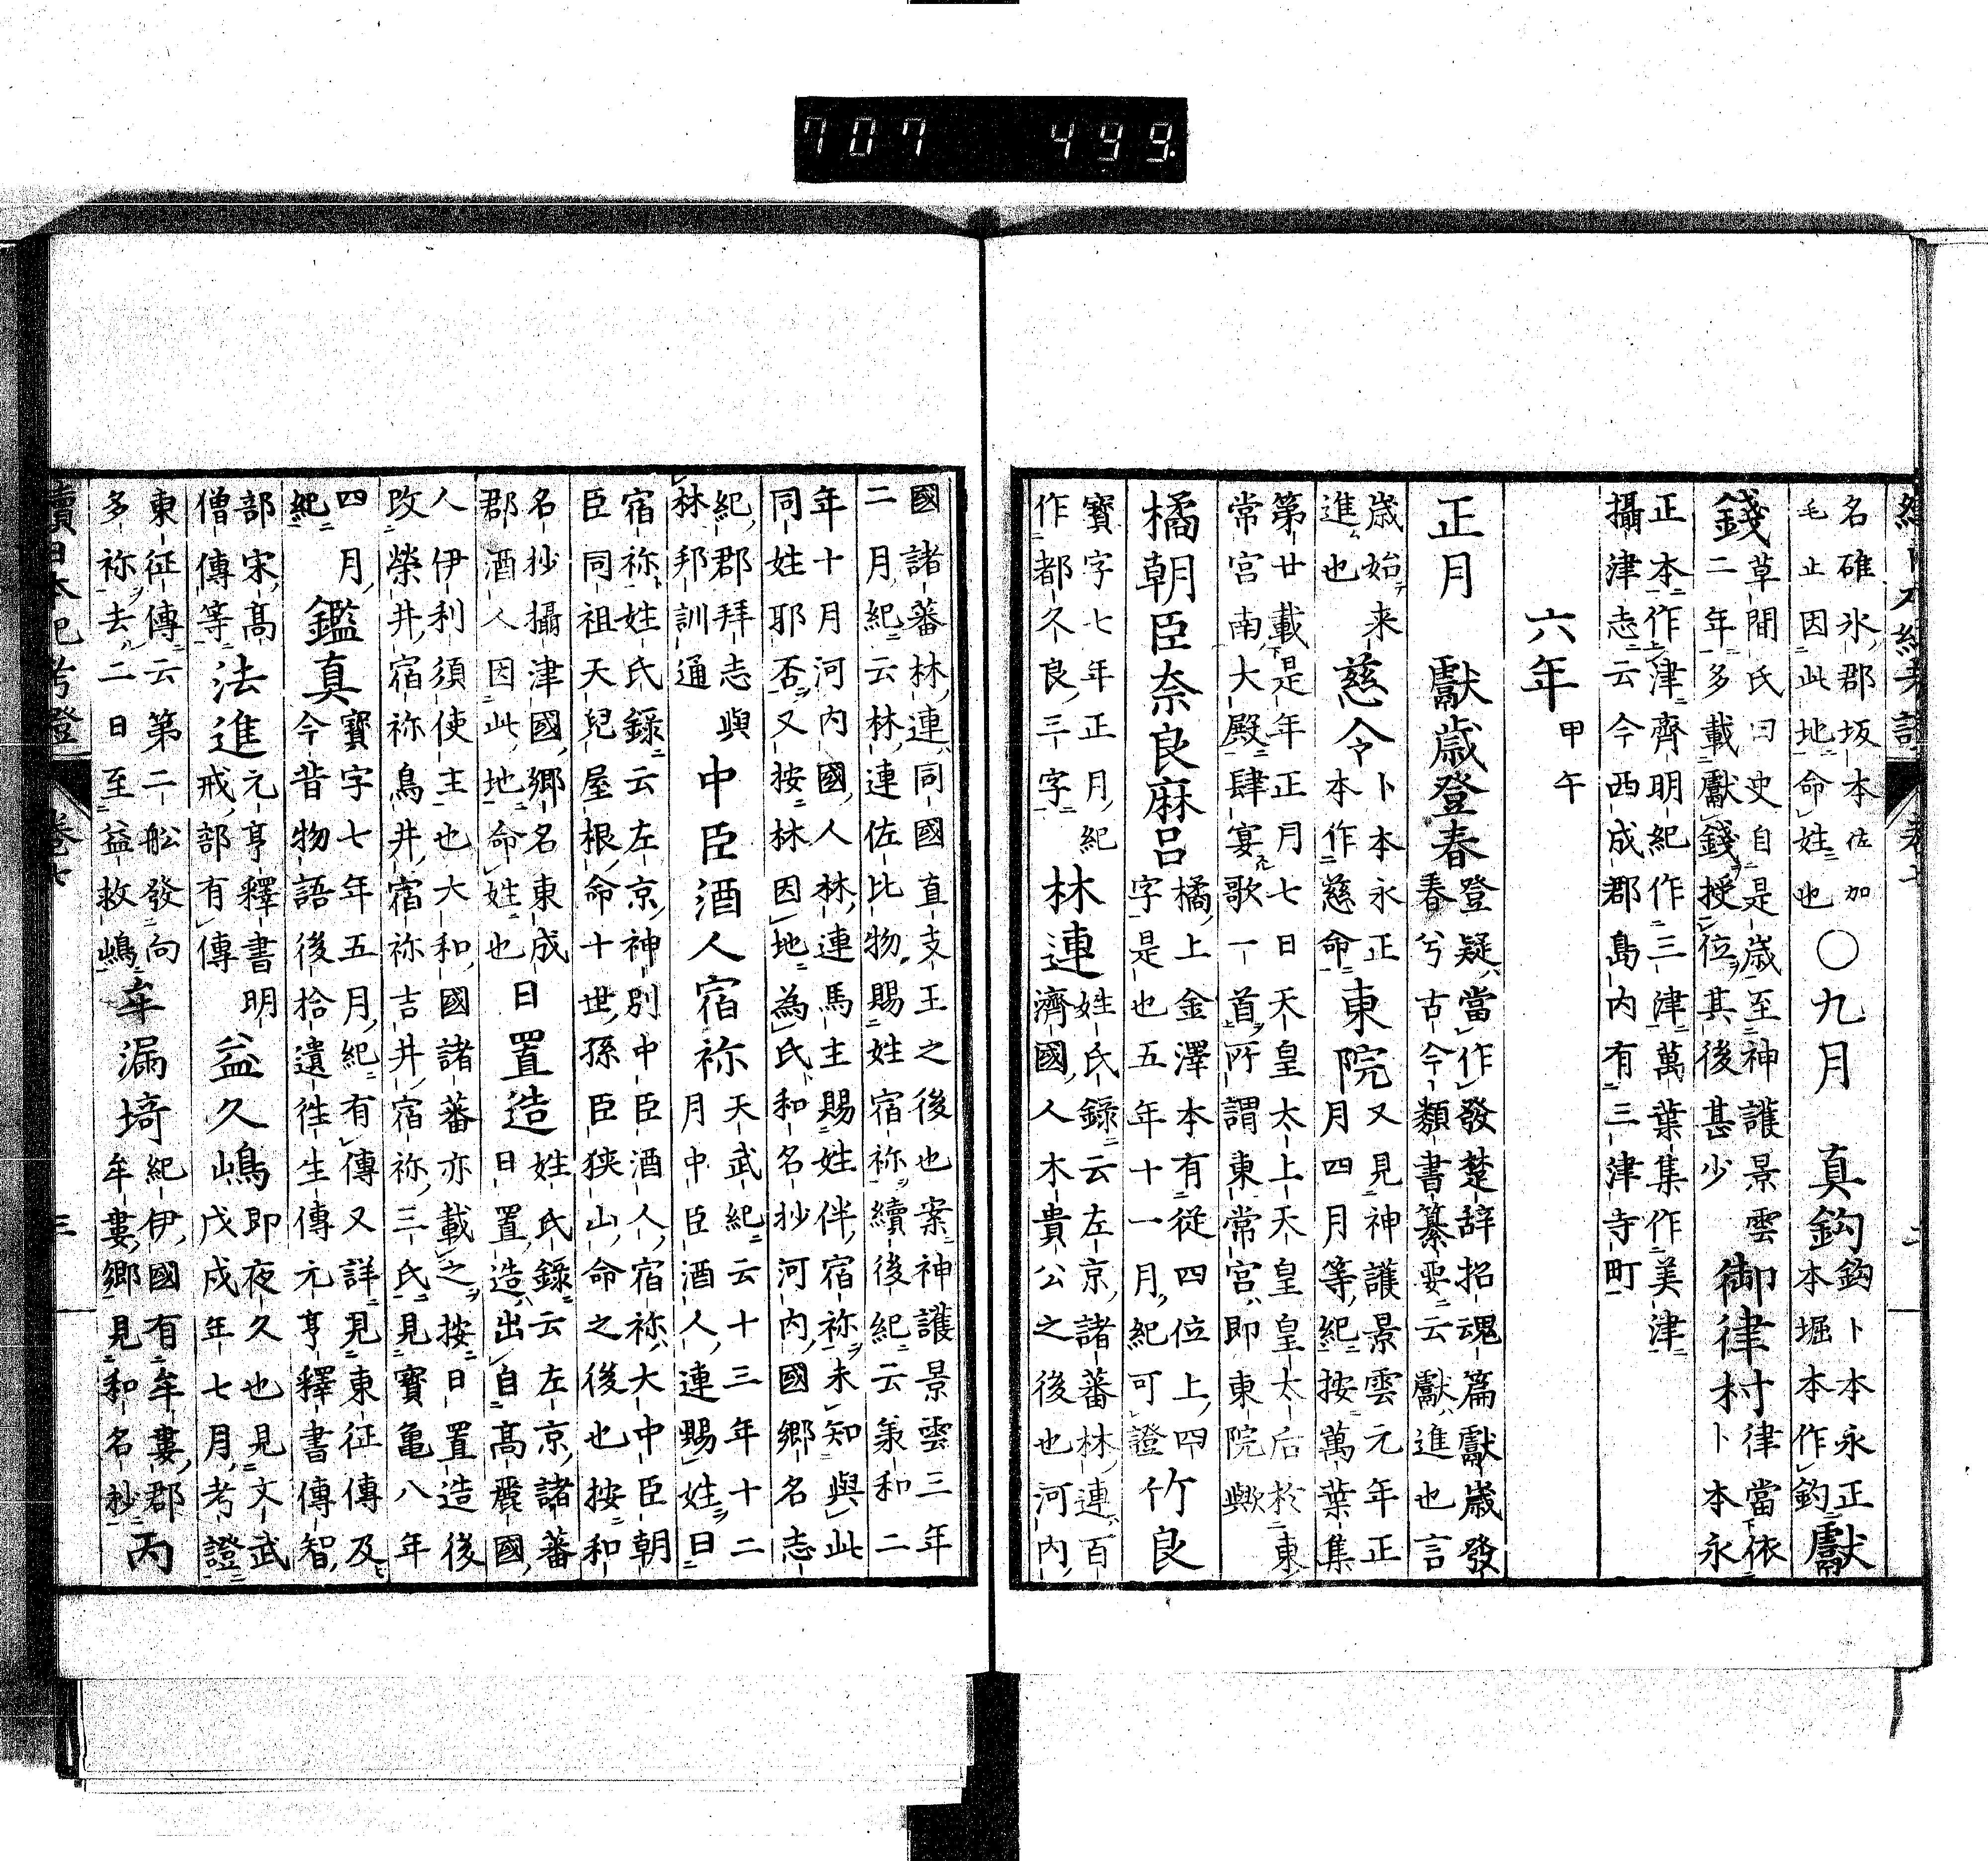 707 499.
名碓氷郡坂本佐加
毛止因此地命姓也
〇九月 真鈎
鈎卜本永正
本堀本作鈞
獻
錢
草間氏曰史自是歳至神護景雲
二年多載獻錢授位其後甚少
御律村
律當依
卜本永
正本作津齊明紀作三津萬葉集作美津
攝津志云今西成郡島内有三津寺町
六年
甲午
正月 獻歳登春
登疑當作發楚辞招魂篇獻歳發
春兮古今類書纂要云獻進也言
歳始来
進也
慈令
卜本永正
本作慈命
東院
又見神護景雲元年正
月四月等紀按萬葉集
第廿載是年正月七日天皇太上天皇皇太后於東
常宮南大殿肆宴歌一首所謂東常宮即東院歟
橘朝臣奈良麻呂
橘上金澤本有從四位上四
字是也五年十一月紀可證
竹良
寶字七年正月紀
作都久良三字
林連
姓氏録云左京諸蕃林連百
濟國人木貴公之後也河内
國諸蕃林連同國直支王之後也案神護景雲三年
二月紀云林連佐比物賜姓宿祢續後紀云羕和二
年十月河内國人林連馬主賜姓伴宿祢未知與此
同姓耶否又按林因地為氏和名抄河内國郷名志
紀郡拜志與
林邦訓通
中臣酒人宿祢
天武紀云十三年十二
月中臣酒人連賜姓曰
宿祢姓氏録云左京神別中臣酒人宿祢大中臣朝
臣同祖天兒屋根命十世孫臣狭山命之後也按和
名抄攝津國郷名東成
郡酒人因此地命姓也
日置造
姓氏録云左京諸蕃
日置造出自高麗國
人伊利須使主也大和國諸蕃亦載之按日置造後
改榮井宿祢鳥井宿祢吉井宿祢三氏見寶亀八年
四月
紀
鑑真
寶字七年五月紀有傳又詳見東征傳及
今昔物語後拾遺徃生傳元亨釋書傳智
部宋高
僧傳等
法進
元亨釋書明
戒部有傳
益久嶋
即夜久也見文武
戊戌年七月考證
東征傳云第二舩發向
多祢去二日至益救嶋
牟漏埼
紀伊國有牟婁郡
牟婁郷見和名抄
丙
續日本紀考證 卷七 三